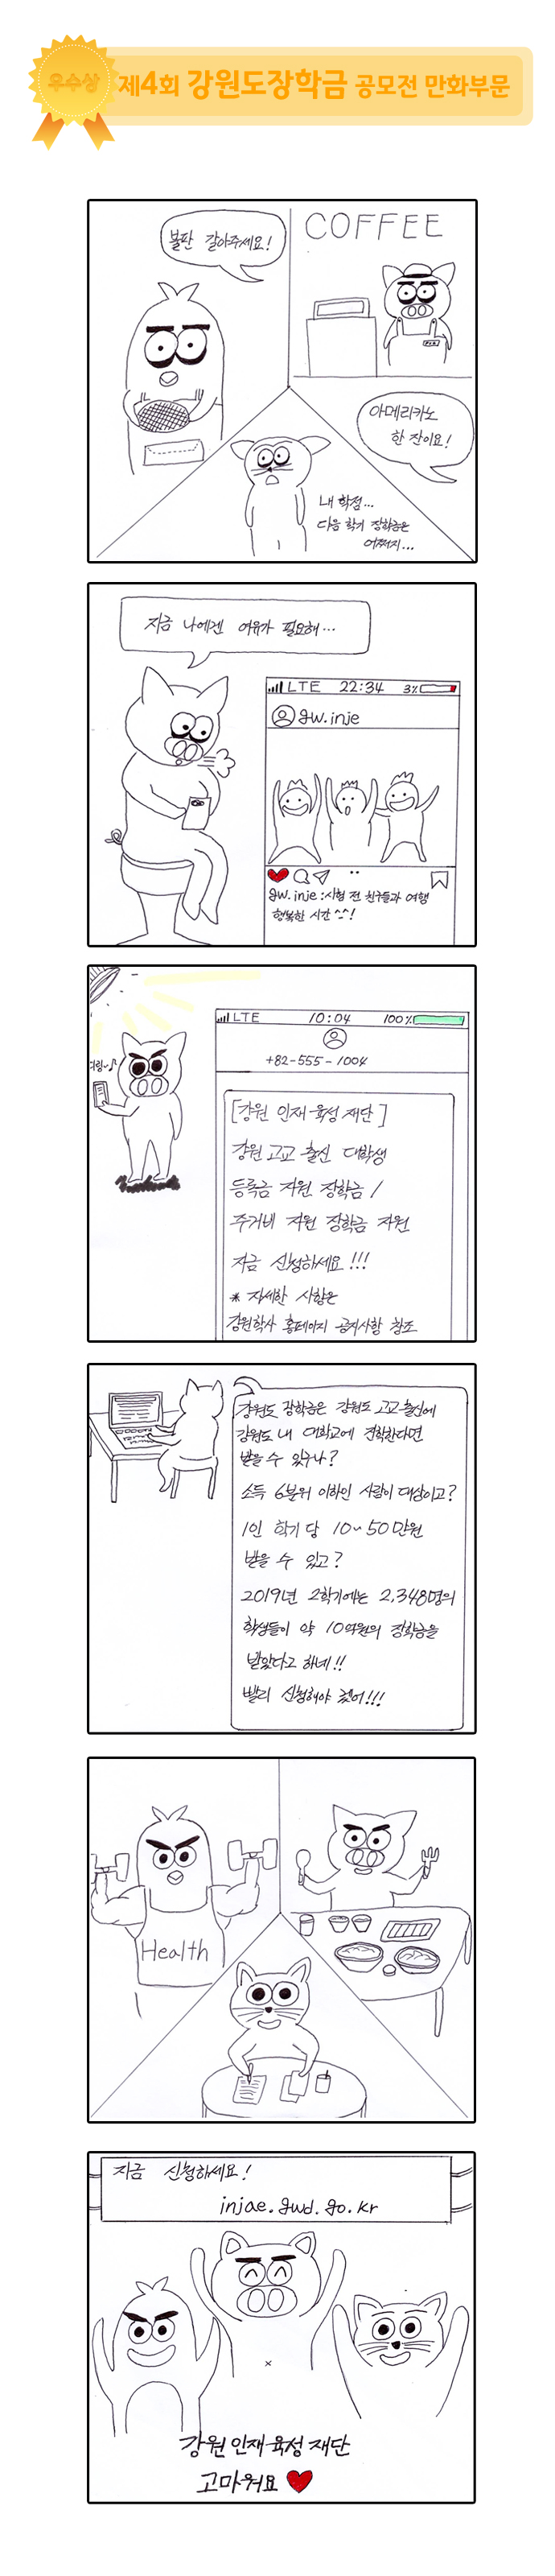 우수상
제4회 강원도장학금 공모전 만화부문
불판 갈아주세요!
COFFEE
아메리카노
한 잔이요!
내 학점...
다음 학기 장학금은
어쩌지...
지금 나에겐 여유가 필요해...
LTE 22:34 3%
gw.inje
gw.inje :시험 전 친구들과 여행
행복한 시간^-^!
띠링~♪
LTE 10:04 100%
+82-555-1004
[강원 인재 육성 재단]
강원 고교 출신 대학생
등록금 지원 장학금 /
주거비 지원 장학금 지원
지금 신청하세요!!!
* 자세한 사항은
강원학사 홈페이지 공지사항 참조
강원도 장학금은 강원도 고교 출신에
강원도 내 대학교에 진학한다면
받을 수 있구나?
소득 6분위 이하인 사람이 대상이고?
1인 학기 당 10~50만원
받을 수 있고?
2019년 2학기에는 2,348명의
학생들이 약 10억원의 장학금을
받았다고 하네!!
빨리 신청해야 겠어!!!
Health
지금 신청하세요!
injae.gwd.go.kr
강원 인재 육성 재단
고마워요